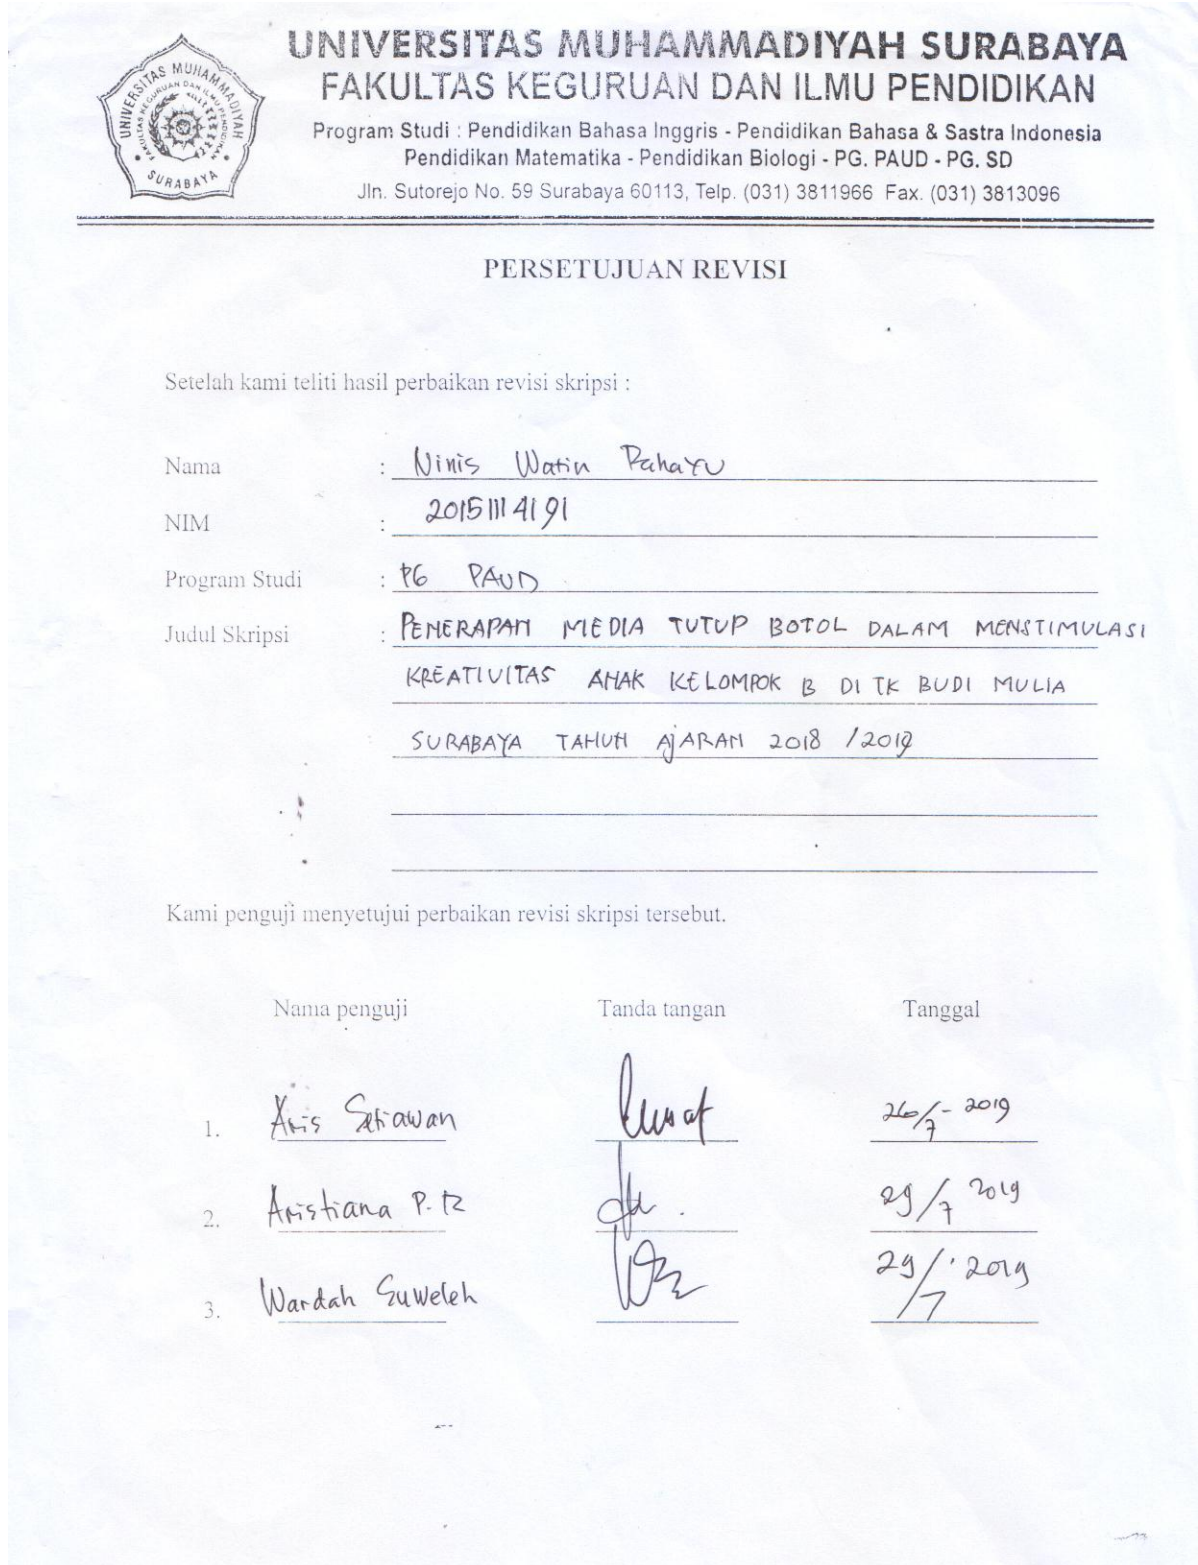 UNIVERSITAS MUHAMMADIYAH SURABAYA
FAKULTAS KEGURUAN DAN ILMU PENDIDIKAN
Program Studi : Pendidikan Bahasa Inggris - Pendidikan Bahasa & Sastra Indonesia
Pendidikan Matematika - Pendidikan Biologi - PG. PAUD - PG. SD
Jln. Sutorejo No. 59 Surabaya 60113, Telp. (031) 3811966 Fax. (031) 3813096
UNIVERSITAS MUHAMMADIYAH
FAKULTAS KEGURUAN DAN ILMU PENDIDIKAN
SURABAYA
PERSETUJUAN REVISI
Setelah kami teliti hasil perbaikan revisi skripsi :
Nama : Ninis Watin Rahayu
NIM : 20151114191
Program Studi : PG PAUD
Judul Skripsi : PENERAPAN MEDIA TUTUP BOTOL DALAM MENSTIMULASI
KREATIVITAS ANAK KELOMPOK B DI TK BUDI MULIA
SURABAYA TAHUN AJARAN 2018 / 2019
Kami penguji menyetujui perbaikan revisi skripsi tersebut.
Nama penguji Tanda tangan Tanggal
1. Aris Setiawan 26/7 - 2019
2. Aristiana P. R 29/7 2019
3. Wardah Suweleh 29/7 2019